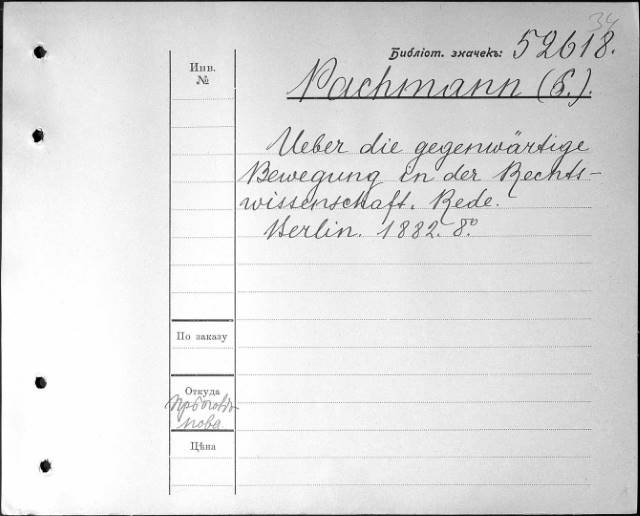 34
Библіот. значекъ: 52618.
Инв.
№
Pachmann (S.).
Ueber die gegenwärtige
Bewegung in der Rechts-
wissenschaft. Rede.
Berlin. 1882. 8.º
По заказу
Откуда
Цѣна